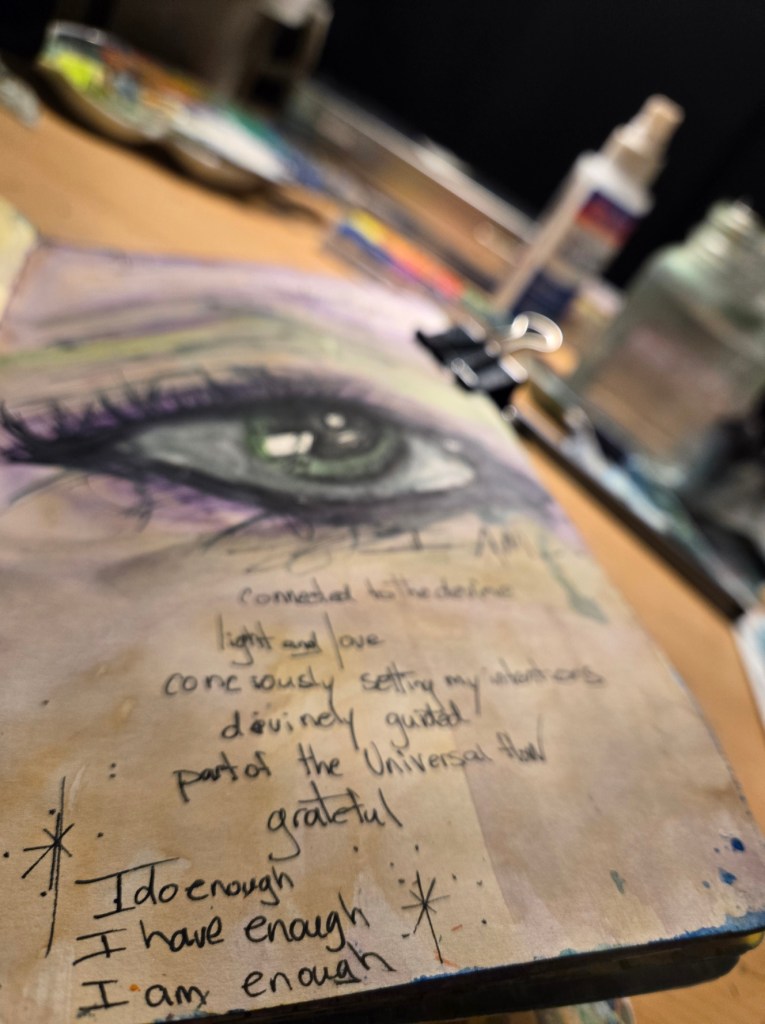 I AM
connected to the devine
light and love
conciously setting my intentions
divinely guided
part of the Universal flow
grateful
I do enough
I have enough
I am enough